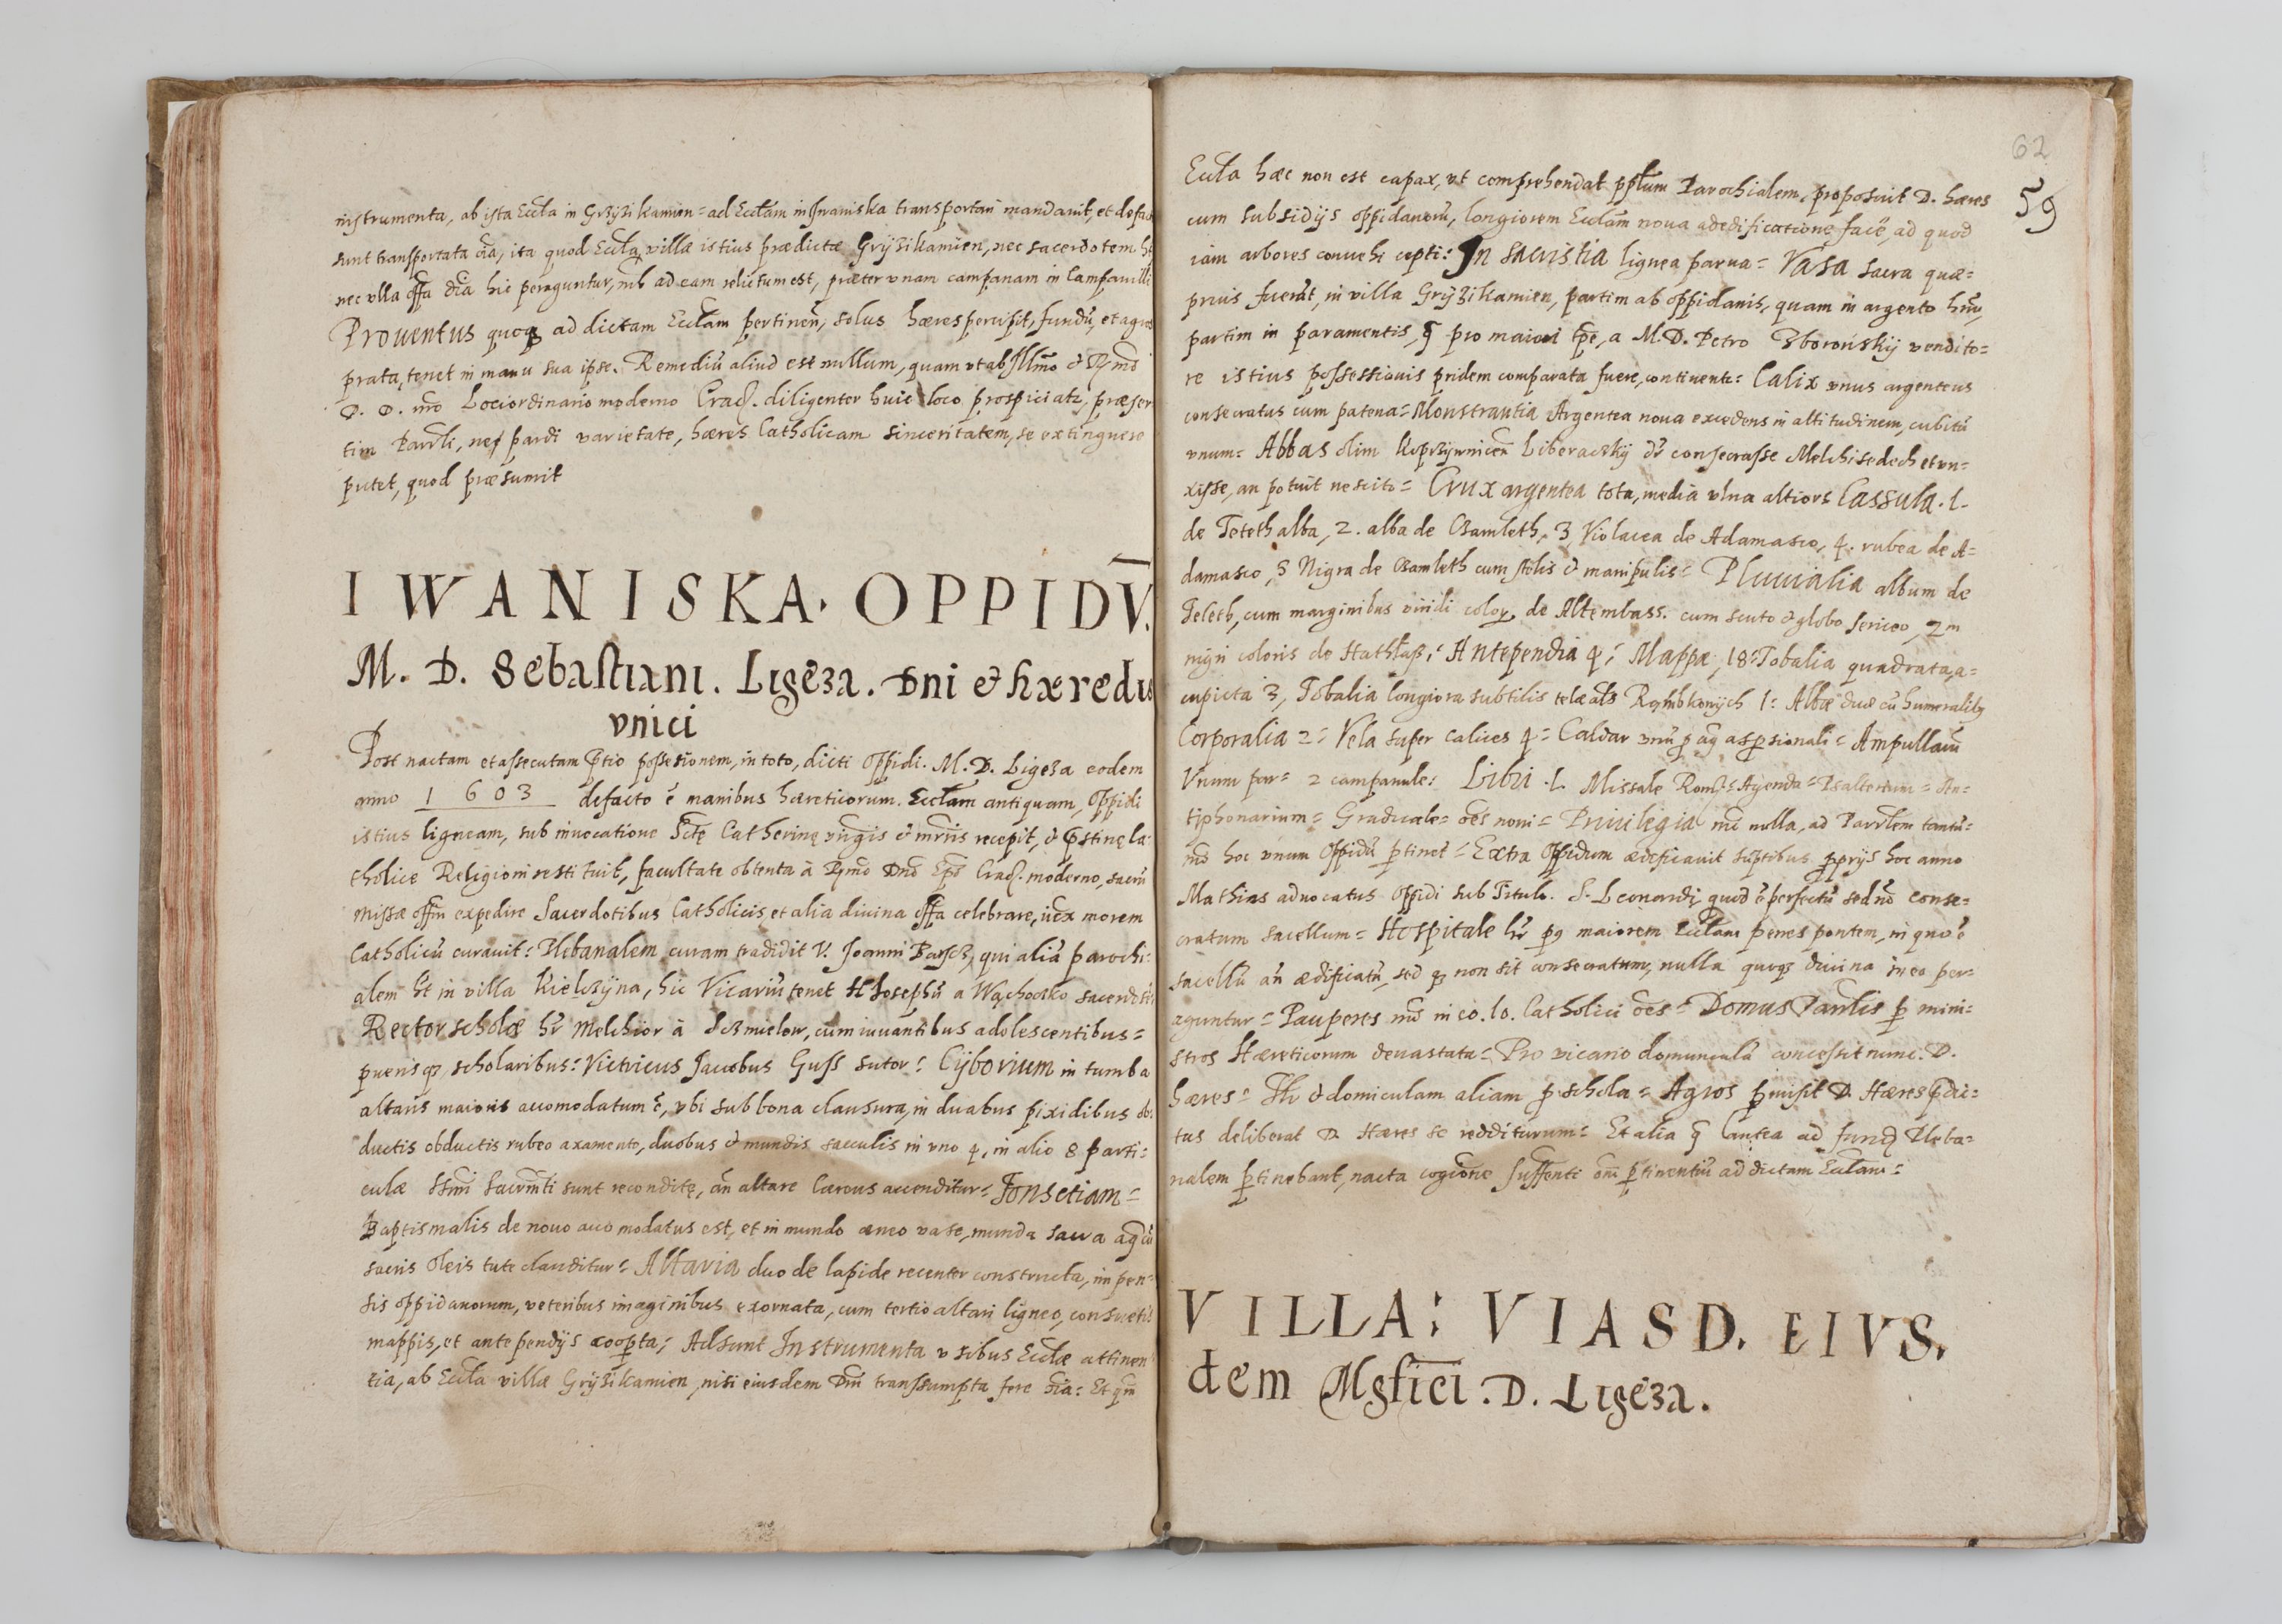 instrumenta, ab ista Eccła in Grzÿzikamien = ad Eccłam in Jwaniska transportari mandavit, et defac
sunt transportata oĩa, ita quod Eccła villæ istius prædictæ Grÿzikamien, nec sacerdotem h
nec vlla offa diã hic peraguntur, nĩl ad eam relictum est, præter vnam campanam in Campanilli
Prouentus quoqʒ ad dictam Eccłam pertineñ, solus hæres percipit, fundũ, et agros
prata, tenet in manu sua ipse. Remediũ aliud est nullum, quam vt ab Jllm̃o & Rm̃o
D. D. nr̃o Lociordinario moderno Crac. diligenter huic loco prospiciatr, præser
tim Parrli, ne pardi varietate, hæres Catholicam sinceritatem, se extinguere
putet, quod præsumit
IWANISKA. OPPIDṼ.
M. D. Sebastiani. Ligęza. Dni & hæredis
vnici
Post nactam et assecutam possesionem, in toto, dicti Oppidi. M. D. Ligęza eodem
anno 1603 defacto ẽ manibus hæreticorum. Eccłam antiquam, Oppidi
istius ligneam, sub inuocatione Sctę Catherinę virgis & mr̃is recepit, & pstinę Ca:
tholicę Religioni restituit, facultate obtenta à Rm̃o Dnõ Epõ Crac. moderno, sacrũ
missæ offm expedire Sacerdotibus Catholicis, et alia diuina offa celebrare, iuĩx morem
Catholicũ curauit: Plebanalem curam tradidit V. Joanni Barsch, qui aliã parochi:
alem ht in villa Kielczÿna, hic Vicariũ tenet H Josephũ a Wąchoczko sacerdotẽ
Rector scholæ hr̃ Melchior à Sczmielow, cum iuuantibus adolescentibus =
puerisqʒ scholaribus: Victricus Jacobus Guss sutor: Cÿborium in tumba
altaris maioris accomodatum ẽ, vbi sub bona clausura, in duabus pixidibus ob:
ductis obductis rubeo axamento, duobus & mundis sacculis in vno 4, in alio 8 parti:
culæ SSmi Sacrm̃ti sunt reconditę, añ altare Cæreus accenditur = Fons etiam =
Baptismalis de nouo accomodatus est, et in mundo æneo vase, munda sacra aq̃ cũ
sacris Oleis tute clauditur = Altaria duo de lapide recenter constructa, impen =
sis oppidanorum, veteribus imaginibus exornata, cum tertio altari ligneo, consuetis
mappis, et antependijs coopta; Adsunt Jnstrumenta vsibus Eccłæ attinen
tia, ab Eccła villæ Grÿzikamien, nisi eiusdem Dm̃ transsumpta fere oĩa: Et qm̃
62
59
Eccła hæc non est capax, vt comprehendat ppłum Parochialem, proposuit D. hæres
cum subsidijs oppidanorũ, longiorem Eccłam noua adedificatione facẽ, ad quod
iam arbores conuehi cepti: Jn sacristia lignea parua = Vasa sacra quæ =
prius fuerũt, in villa Grÿzikamien, partim ab oppidanis, quam in argento hñr,
partim in paramentis, q̃ pro maiori tp̃e, a M. D. Petro Zborowskij vendito =
re istius possessionis pridem comparata fuere, continentr: Calix vnus argenteus
consecratus cum patena = Monstrantia Argentea noua excedens in altitudinem, cubitũ
vnum = Abbas olim Koprzÿwniceñ Liberaczkÿ dr̃ consecrasse Melchisedech et vn =
xisse, an potuit nescitr = Crux argentea tota, media vlna altiors Cassula. 1.
de Teleth alba, 2. alba de Czamleth, 3 Violacea de Adamasco, 4. rubea de A =
damasco, 5 Nigra de Czamleth cum stolis & manipulis = Pluuialia album de
Teleth, cum marginibus viridi color, de Altembass. cum scuto & globo sericeo, 2m
nigri coloris de Hathłaß: Antependia 4: Mappæ, 18: Tobalia quadrata, a =
cupicta 3, Tobalia longiora subtilis telæ als Rąmbkowÿch 1: Albæ duæ cũ humeralibʒ
Corporalia 2 = Vela super calices 4 = Caldar vnũ p aq̃ aspsionali = Ampullarũ
Vnum par = 2 campanulæ: Libri .1. Missale Rom: = Agenda = Psalterium = An =
tiphonarium = Graduale = oẽs noui = Priuilegia nũc nulla, ad Parrlem tantũ =
mõ hoc vnum Oppidũ ptinet = Extra Oppidum ædificauit sũptibus pprijs hoc anno
Mathias aduocatus Oppidi sub Titulo. S. Leonardi, quod ẽ perfectũ sed nõ conse =
cratum sacellum = Hospitale hr̃ pp maiorem Eccłam penes pontem, in quo ẽ
sacellũ añ ædificatũ, sed q non sit consecratum, nulla quoqʒ diuina in eo per =
aguntur = Pauperes nũc in eo. 10. Catholici oẽs = Domus Parrlis p mini =
stros Hæreticorum deuastata = Pro vicario domunculã concessit nunc. D.
hæres = & domiculam aliam p schola = Agros pmisit D. Hæres pdic =
tus deliberat D. Hæres se redditurum = Et alia q̃ antea ad fund Pleba =
nalem ptinebant, nacta cogitione Suffcienti oĩm ptinentiũ ad dictam Eccłam =
VILLA: VIASD. EIVS.
dem Mgfici. D. Ligęza.